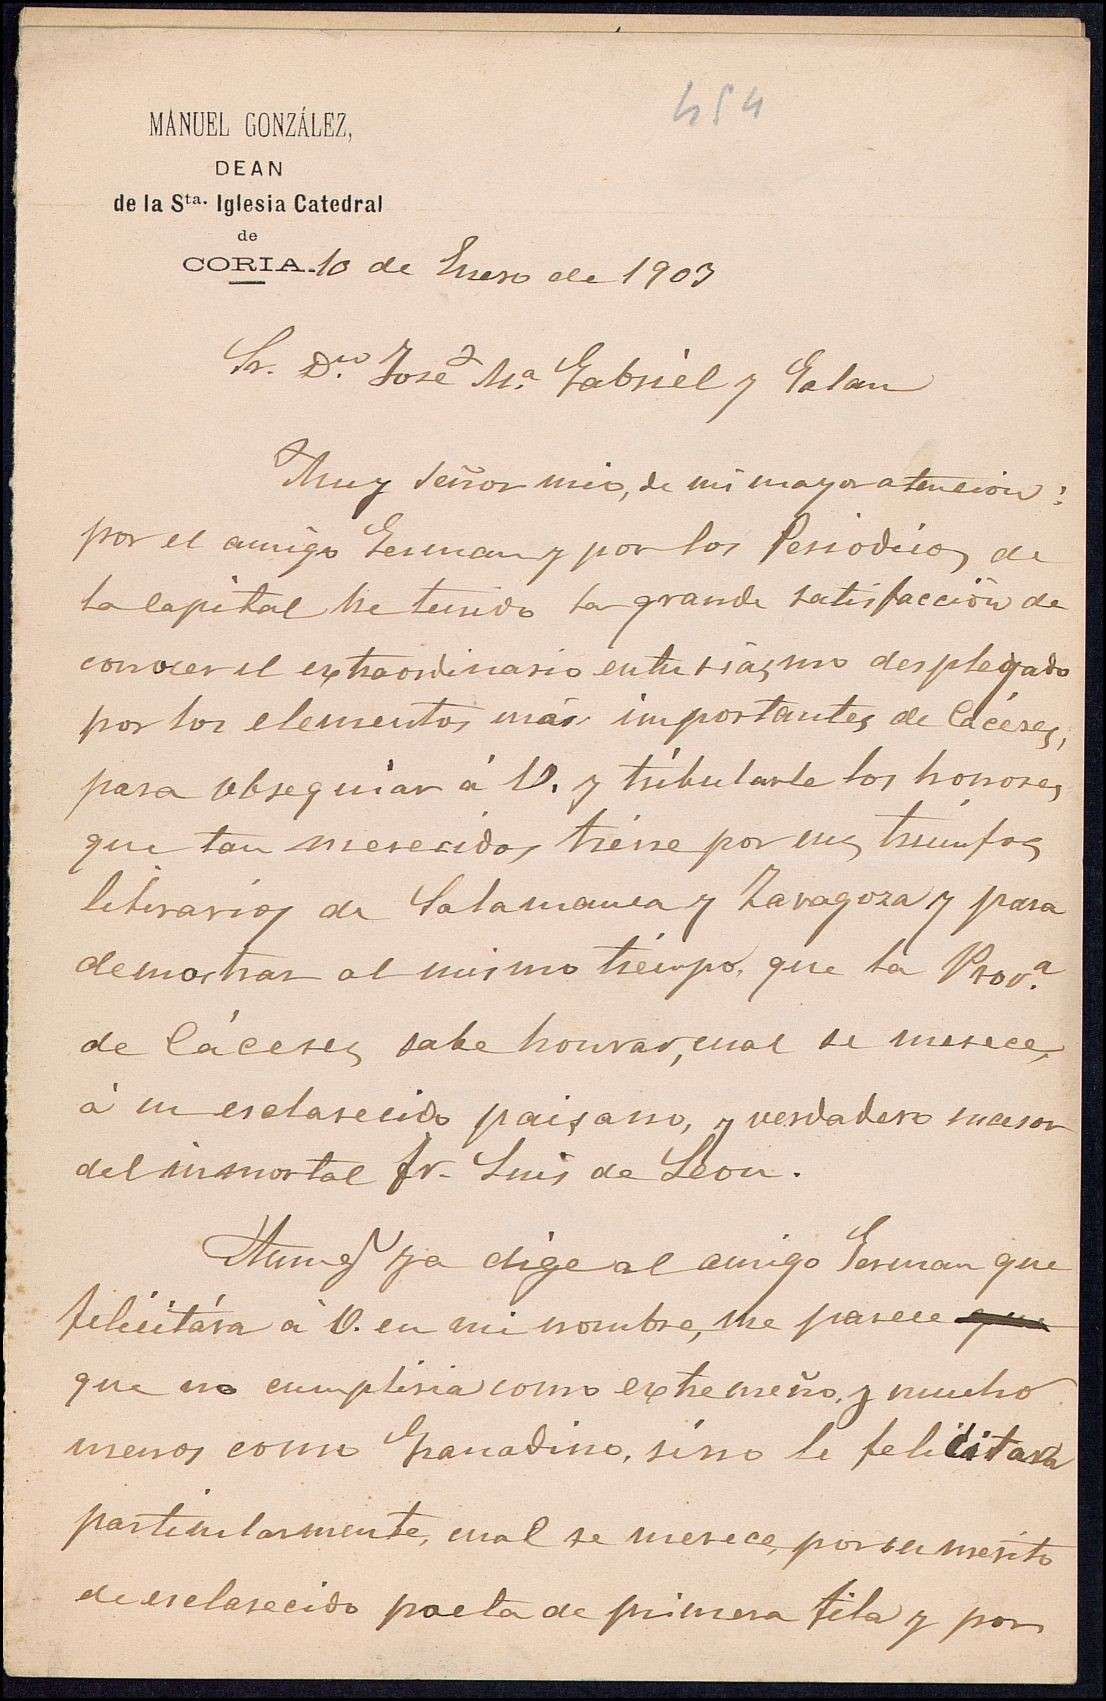 454
MANUEL GONZÁLEZ,
DEAN
de la Sta. Iglesia Catedral
de
CORIA. 10 de Enero de 1903
Sr. Dn. José Ma. Gabriel y Galan
Muy Señor mio, de mi mayor atencion:
por el amigo German y por los Periodicos de
la Capital he tenido la grande satisfacción de
conocer el extraordinario entusiasmo desplegado
por los elementos más importantes de Cáceres,
para obsequiar á V. y tributarle los honores
que tan merecidos tiene por sus triunfos
literarios de Salamanca y Zaragoza y para
demostrar al mismo tiempo, que la Prov.a
de Cáceres sabe honrar, cual se merece,
á su esclarecido paisano, y verdadero sucesor
del inmortal Fr. Luis de Leon.
Aunq. ya dige al amigo German que
felicitára á V. en mi nombre, me parece que
que no cumpliria como extremeño, y mucho
menos como Granadino, sino le felicitara
particularmente, cual se merece, por su merito
de esclarecido poeta de primera fila y por